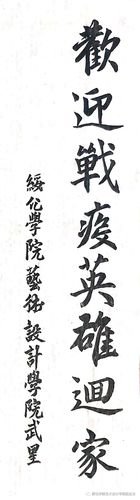 歡迎戰疫英雄迴家
綏化學院藝術設計學院武星